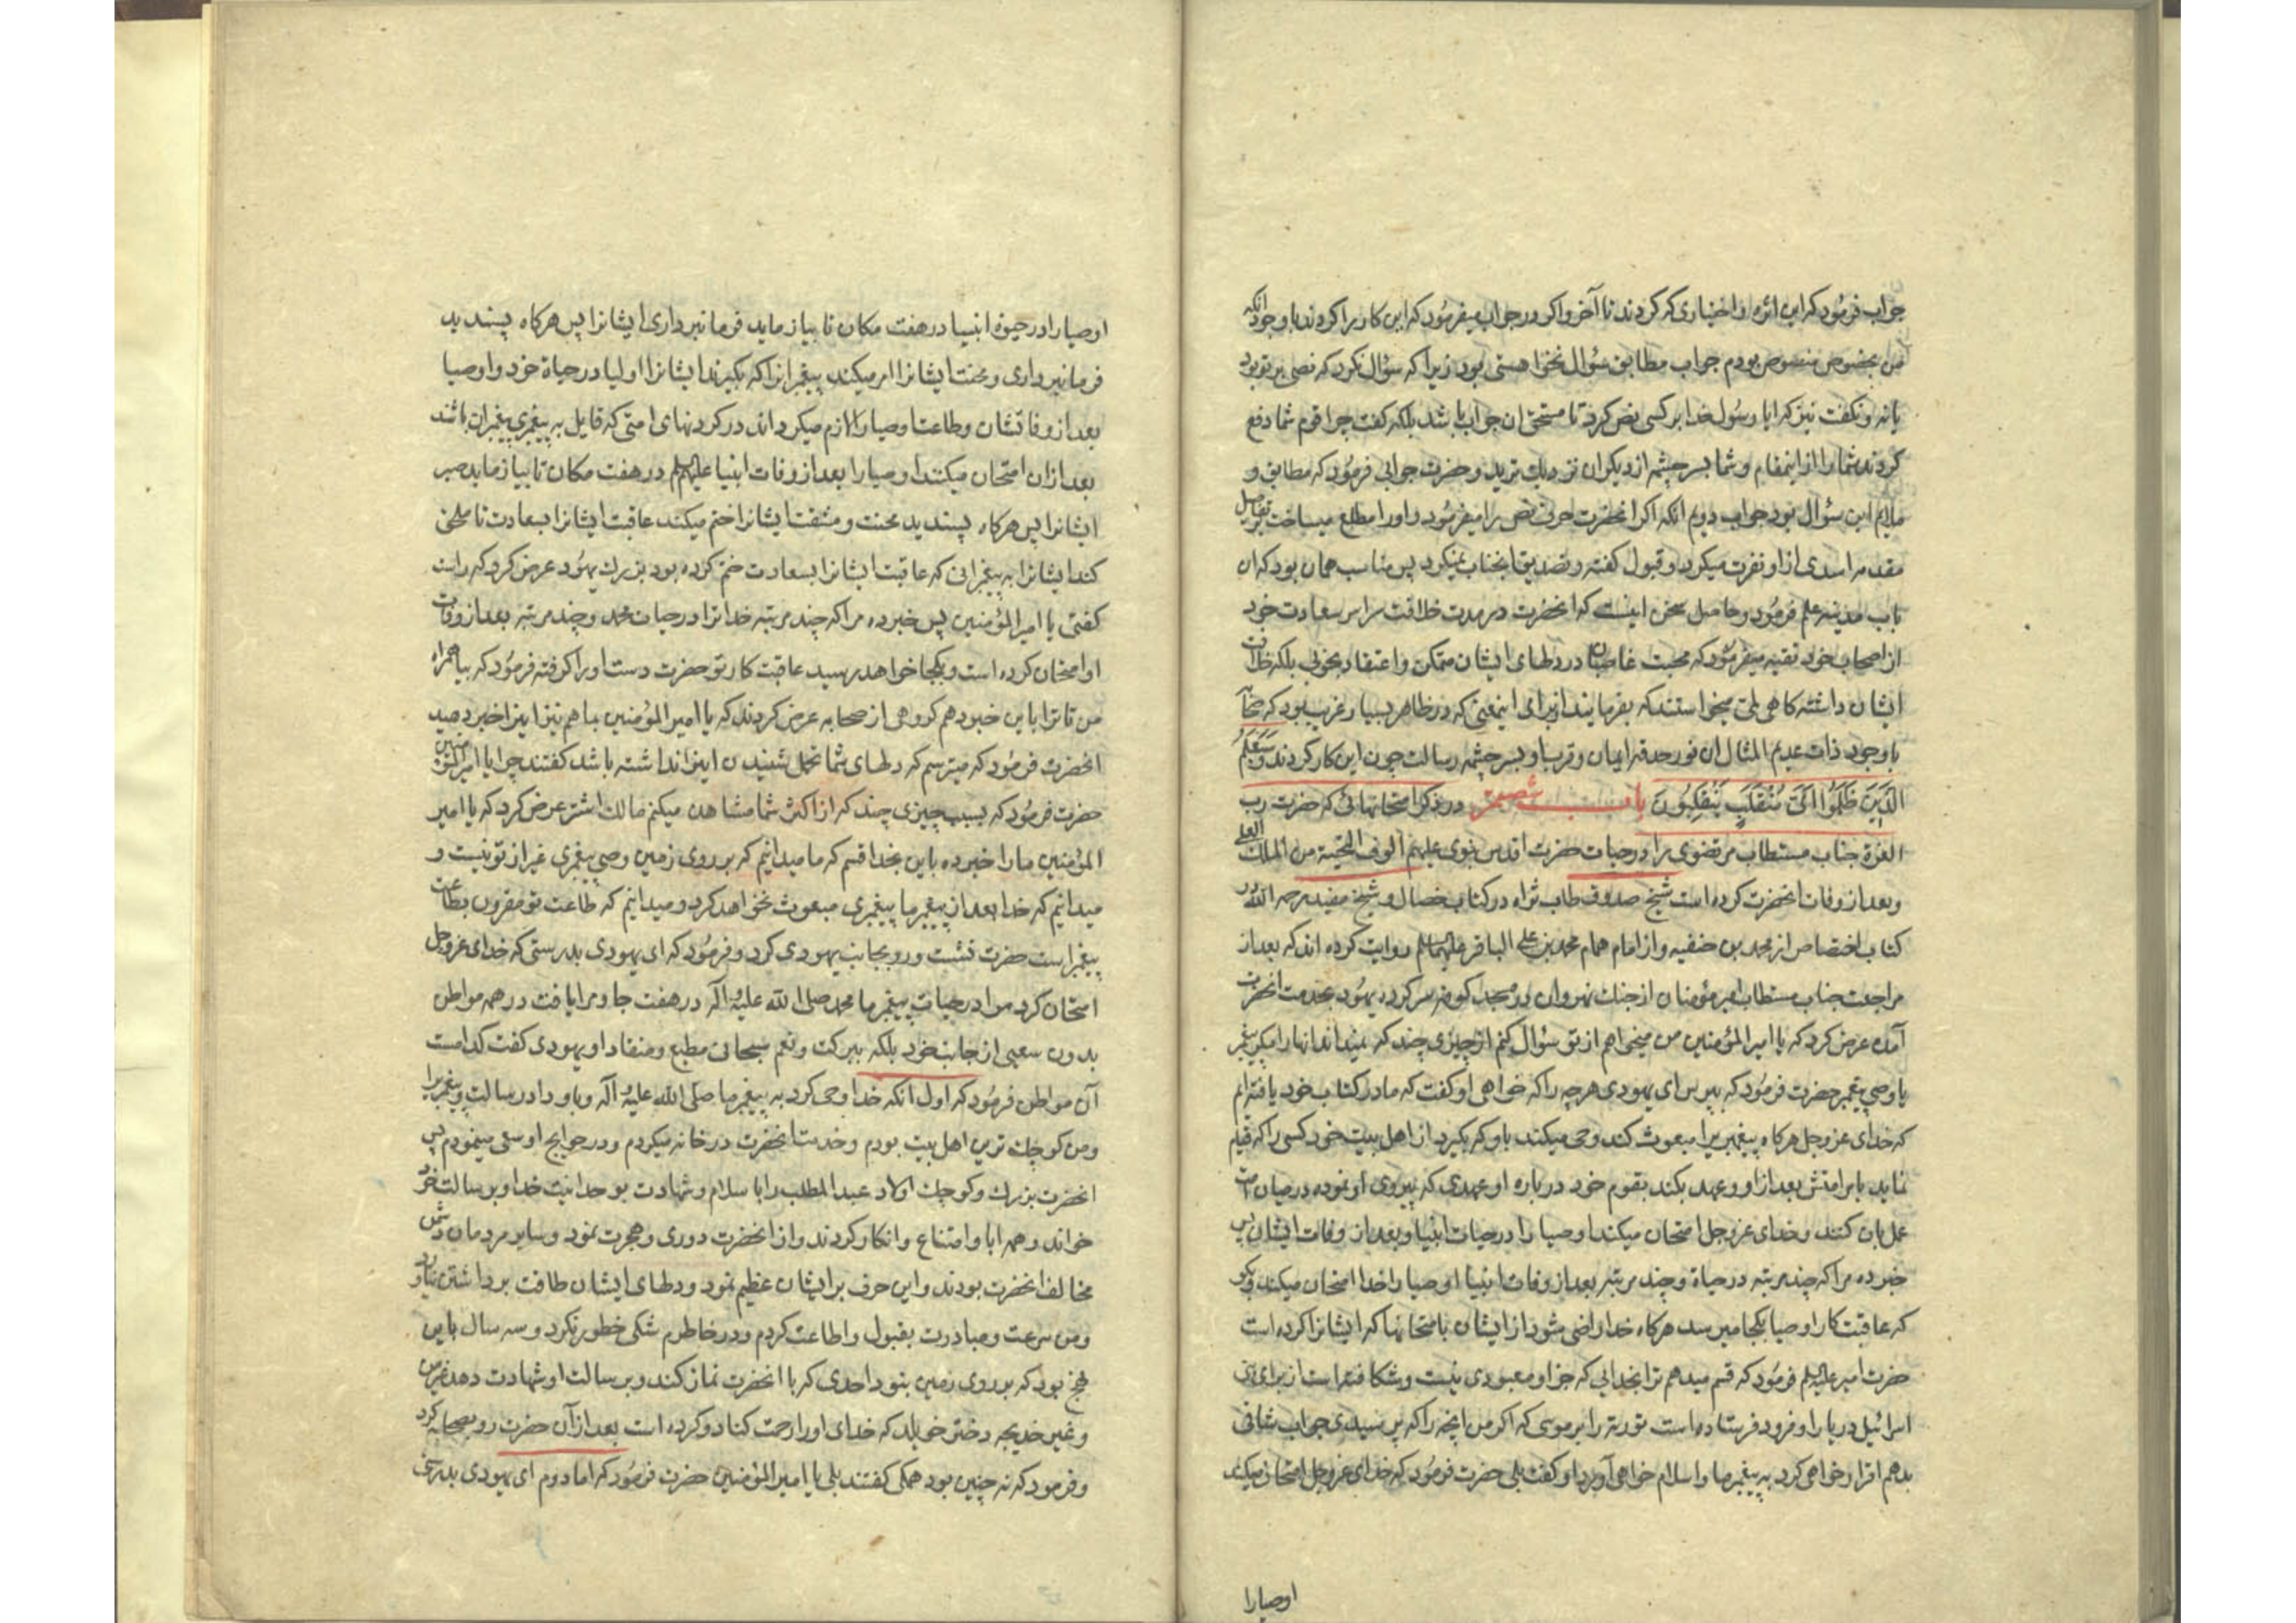 جواب فرمود که این اثره و اختیاری که کردند تا آخر و اگر در جواب میفرمود که این کار را کردند با وجود آنکه
من بخصوص منصوص بودم جواب مطابق سؤال نخواهستی بود زیرا که سؤال نکرد که نص بر تو بود
یا نه و نگفت نیز که ایا رسول خدا بر کسی نص کرد تا مستحق ان جواب باشد بلکه گفت چرا قوم شما دفع
کردند شما را از اینمقام و شما بسرچشمه از دیگران نزدیک ترید و حضرت جوابی فرمود که مطابق و
ملایم این سؤال بود جواب دویم انکه اگر انحضرت حرف نص را میفرمود و اورا مطلع میساخت بر تفاصیل
مقدمه اسدی از او نفرت میکرد و قبول گفته و تصدیق انجناب نمیکرد پس مناسب همان بود که ان
باب مدینه علم فرمود و حاصل سخن اینست که انحضرت در مدت خلافت سراسر سعادت خود
از اصحاب خود تقیه میفرمود که محبت غاصبان در دلهای ایشان متمکن و اعتقاد بخوبی بلکه خلافت
ایشان داشتند کاهی میخواستند که بفرمایند از برای اینمعنی که در ظاهر بسیار غریب بود که صحابه
با وجود ذات عدیم المثال ان نور حدقه ایمان و قرب او بسرچشمه رسالت چون این کار کردند و سیعلم
الذین ظلموا ای منقلب ینقلبون باب شصتم در ذکر امتحانهائی که حضرت رب
العزة جناب مستطاب مرتضوی را در حیات حضرت اقدس نبوی علیهم الوف التحیة من الملک العلی
و بعد از وفات انحضرت کرده است شیخ صدوق طاب ثراه در کتاب خصال و شیخ مفید رحمه الله در
کتاب اختصاص از محمد بن حنفیه و از امام همام محمد بن علی الباقر علیهما السلم روایت کرده اند که بعد از
مراجعت جناب مستطاب امیر مؤمنان از جنک نهروان در مسجد کوفه سرکرده یهود بخدمت انحضرت
آمده عرض کرد که یا امیر المؤمنین من میخواهم از تو سؤال کنم از چیزی چند که نمیداند انها را مکر پیغمبر
یا وصی پیغمبر حضرت فرمود که بپرس ای یهودی هرچه را که خواهی او گفت که ما در کتاب خود یافته ایم
که خدای عز و جل هرگاه پیغمبریرا مبعوث کند وحی میکند باو که بگیرد از اهل بیت خود کسی را که قیام
نماید بامر امتش بعد از او و عهد بکند بقوم خود در باره او عهدی که پیروی او نموده در میان امت
عمل بان کنند و خدای عز و جل امتحان میکند اوصیا را در حیات انبیا و بعد از وفات ایشان پس
خبر ده مرا که چند مرتبه در حیاة و چند مرتبه بعد از وفات انبیا اوصیا را خدا امتحان میکند و بکو
که عاقبت کار اوصیا بکجا میرسد هرگاه خدا راضی شود از ایشان بامتحانها که ایشانرا کرده است
حضرت امیر علیه السلم فرمود که قسم میدهم ترا بخدایی که جز او معبودی نیست و شکافته است از برای بنی
اسرائیل دریا را و فرود فرستاده است توریة را بر موسی که اگر من انچه را که پرسیدی جواب شافی
بدهم اقرار خواهی کرد به پیغمبر ما و اسلام خواهی آورد او گفت بلی حضرت فرمود که خدای عز و جل امتحان میکند
اوصیا را
اوصیا را در حیوة انبیا در هفت مکان تا بیازماید فرمانبرداری ایشانرا پس هرگاه پسندید
فرمانبرداری و محنت ایشانرا امر میکند پیغمبرانرا که بگیرند ایشانرا اولیا در حیاة خود و اوصیا
بعد از وفاتشان و طاعت اوصیا را لازم میکرداند در کردنهای امتی که قایل به پیغمبری پیغمبران باشند
بعد ازان امتحان میکند اوصیا را بعد از وفات انبیا علیهم السلم در هفت مکان تا بیازماید صبر
ایشانرا پس هرگاه پسندید محنت و مشقت ایشانرا ختم میکند عاقبت ایشانرا بسعادت تا ملحق
کند ایشانرا به پیغمبرانی که عاقبت ایشانرا بسعادت ختم کرده بود بزرک یهود عرض کرد که راست
گفتی یا امیر المؤمنین پس خبر ده مرا که چند مرتبه خدا ترا در حیات محمد و چند مرتبه بعد از وفات
او امتحان کرده است و بکجا خواهد رسید عاقبت کار تو حضرت دست او را گرفته فرمود که بیا همراه
من تا ترا باین خبر دهم گروهی از صحابه عرض کردند که یا امیر المؤمنین بما هم نیز اینرا خبر دهید
انحضرت فرمود که میترسم که دلهای شما تحمل شنیدن اینرا نداشته باشد گفتند چرا یا امیر المؤمنین
حضرت فرمود که بسبب چیزی چند که از اکثر شما مشاهده میکنم مالک اشتر عرض کرد که یا امیر
المؤمنین ما را خبر ده باین بخدا قسم که ما میدانیم که بر روی زمین وصی پیغمبری غیر از تو نیست و
میدانیم که خدا بعد از پیغمبر ما پیغمبری مبعوث نخواهد کرد و میدانیم که طاعت تو مقرون بطاعت
پیغمبر است حضرت نشست و رو بجانب یهودی کرد و فرمود که ای یهودی بدرستی که خدای عز و جل
امتحان کرد مرا در حیات پیغمبر ما محمد صلی الله علیه و آله در هفت جا و مرا یافت در همه مواطن
بدون سعیی از جانب خود بلکه ببرکت و نعم سبحانی مطیع و منقاد او یهودی گفت کدامست
آن مواطن فرمود که اول آنکه خدا وحی کرد به پیغمبر ما صلی الله علیه و آله و باو داد رسالت و پیغمبریرا
و من کوچک ترین اهل بیت بودم و خدمت انحضرت در خانه میکردم و در حوایج او سعی مینمودم پس
انحضرت بزرک و کوچک اولاد عبد المطلب را باسلام و شهادت بوحدانیت خدا و برسالت خود
خواند و همه ابا و امتناع و انکار کردند و از انحضرت دوری و هجرت نمود و سایر مردمان دشمن
مخالف انحضرت بودند و این حرف بر ایشان عظیم نمود و دلهای ایشان طاقت برداشتن نیاورد
و من سرعت و مبادرت بقبول و اطاعت کردم و در خاطرم شکی خطور نکرد و سه سال باین
نهج بود که بر روی زمین نبود احدی که با انحضرت نماز کند و برسالت او شهادت دهد غیر من
و غیر خدیجه دختر خویلد که خدای او را رحمت کناد و کرده است بعد از آن حضرت رو بصحابه کرد
و فرمود که نه چنین بود همکی گفتند بلی یا امیر المؤمنین حضرت فرمود که اما دوم ای یهودی بدرستی